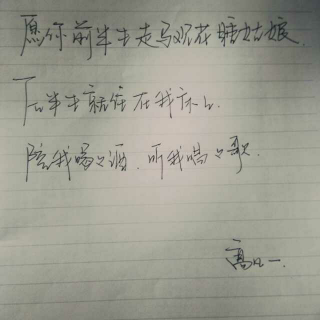 愿你前半生走马观花睡姑娘.
下半生就住在我床上.
陪我喝喝酒.听我唱唱歌.
高凡一.